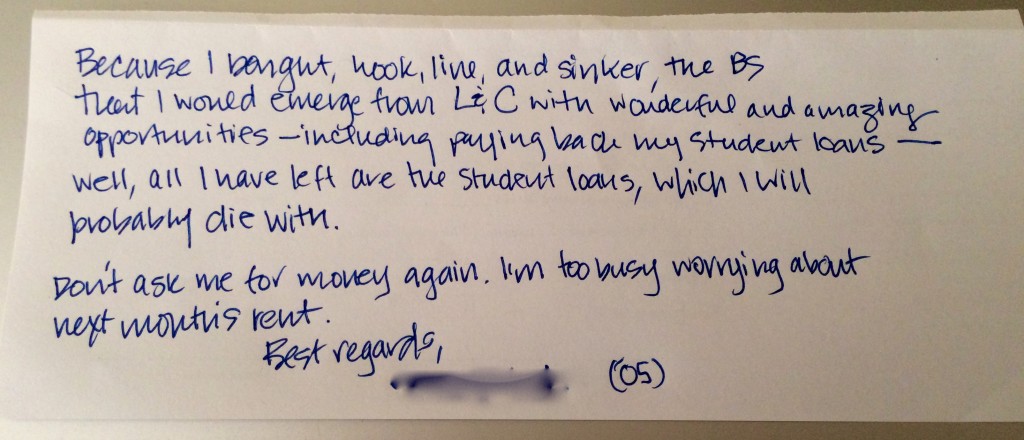 Because I bought, hook, line, and sinker, the BS
that I would emerge from L & C with wonderful and amazing
opportunities — including paying back my student loans —
well, all I have left are the student loans, which I will
probably die with.
Don't ask me for money again. I'm too busy worrying about
next month's rent.
Best regards,
('05)